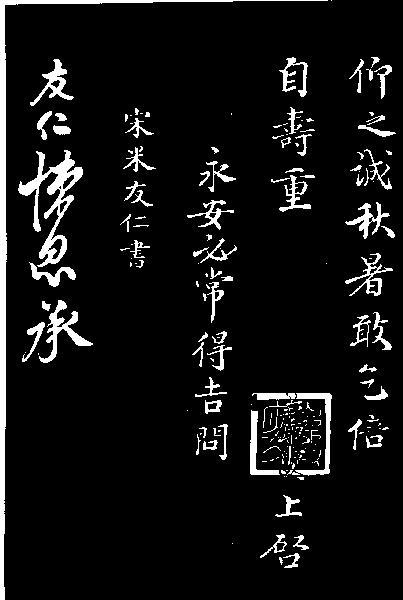 仰之诚秋暑敢乞倍
自壽重
上啓
永安必常得吉問
宋米友仁書
友仁悚息承